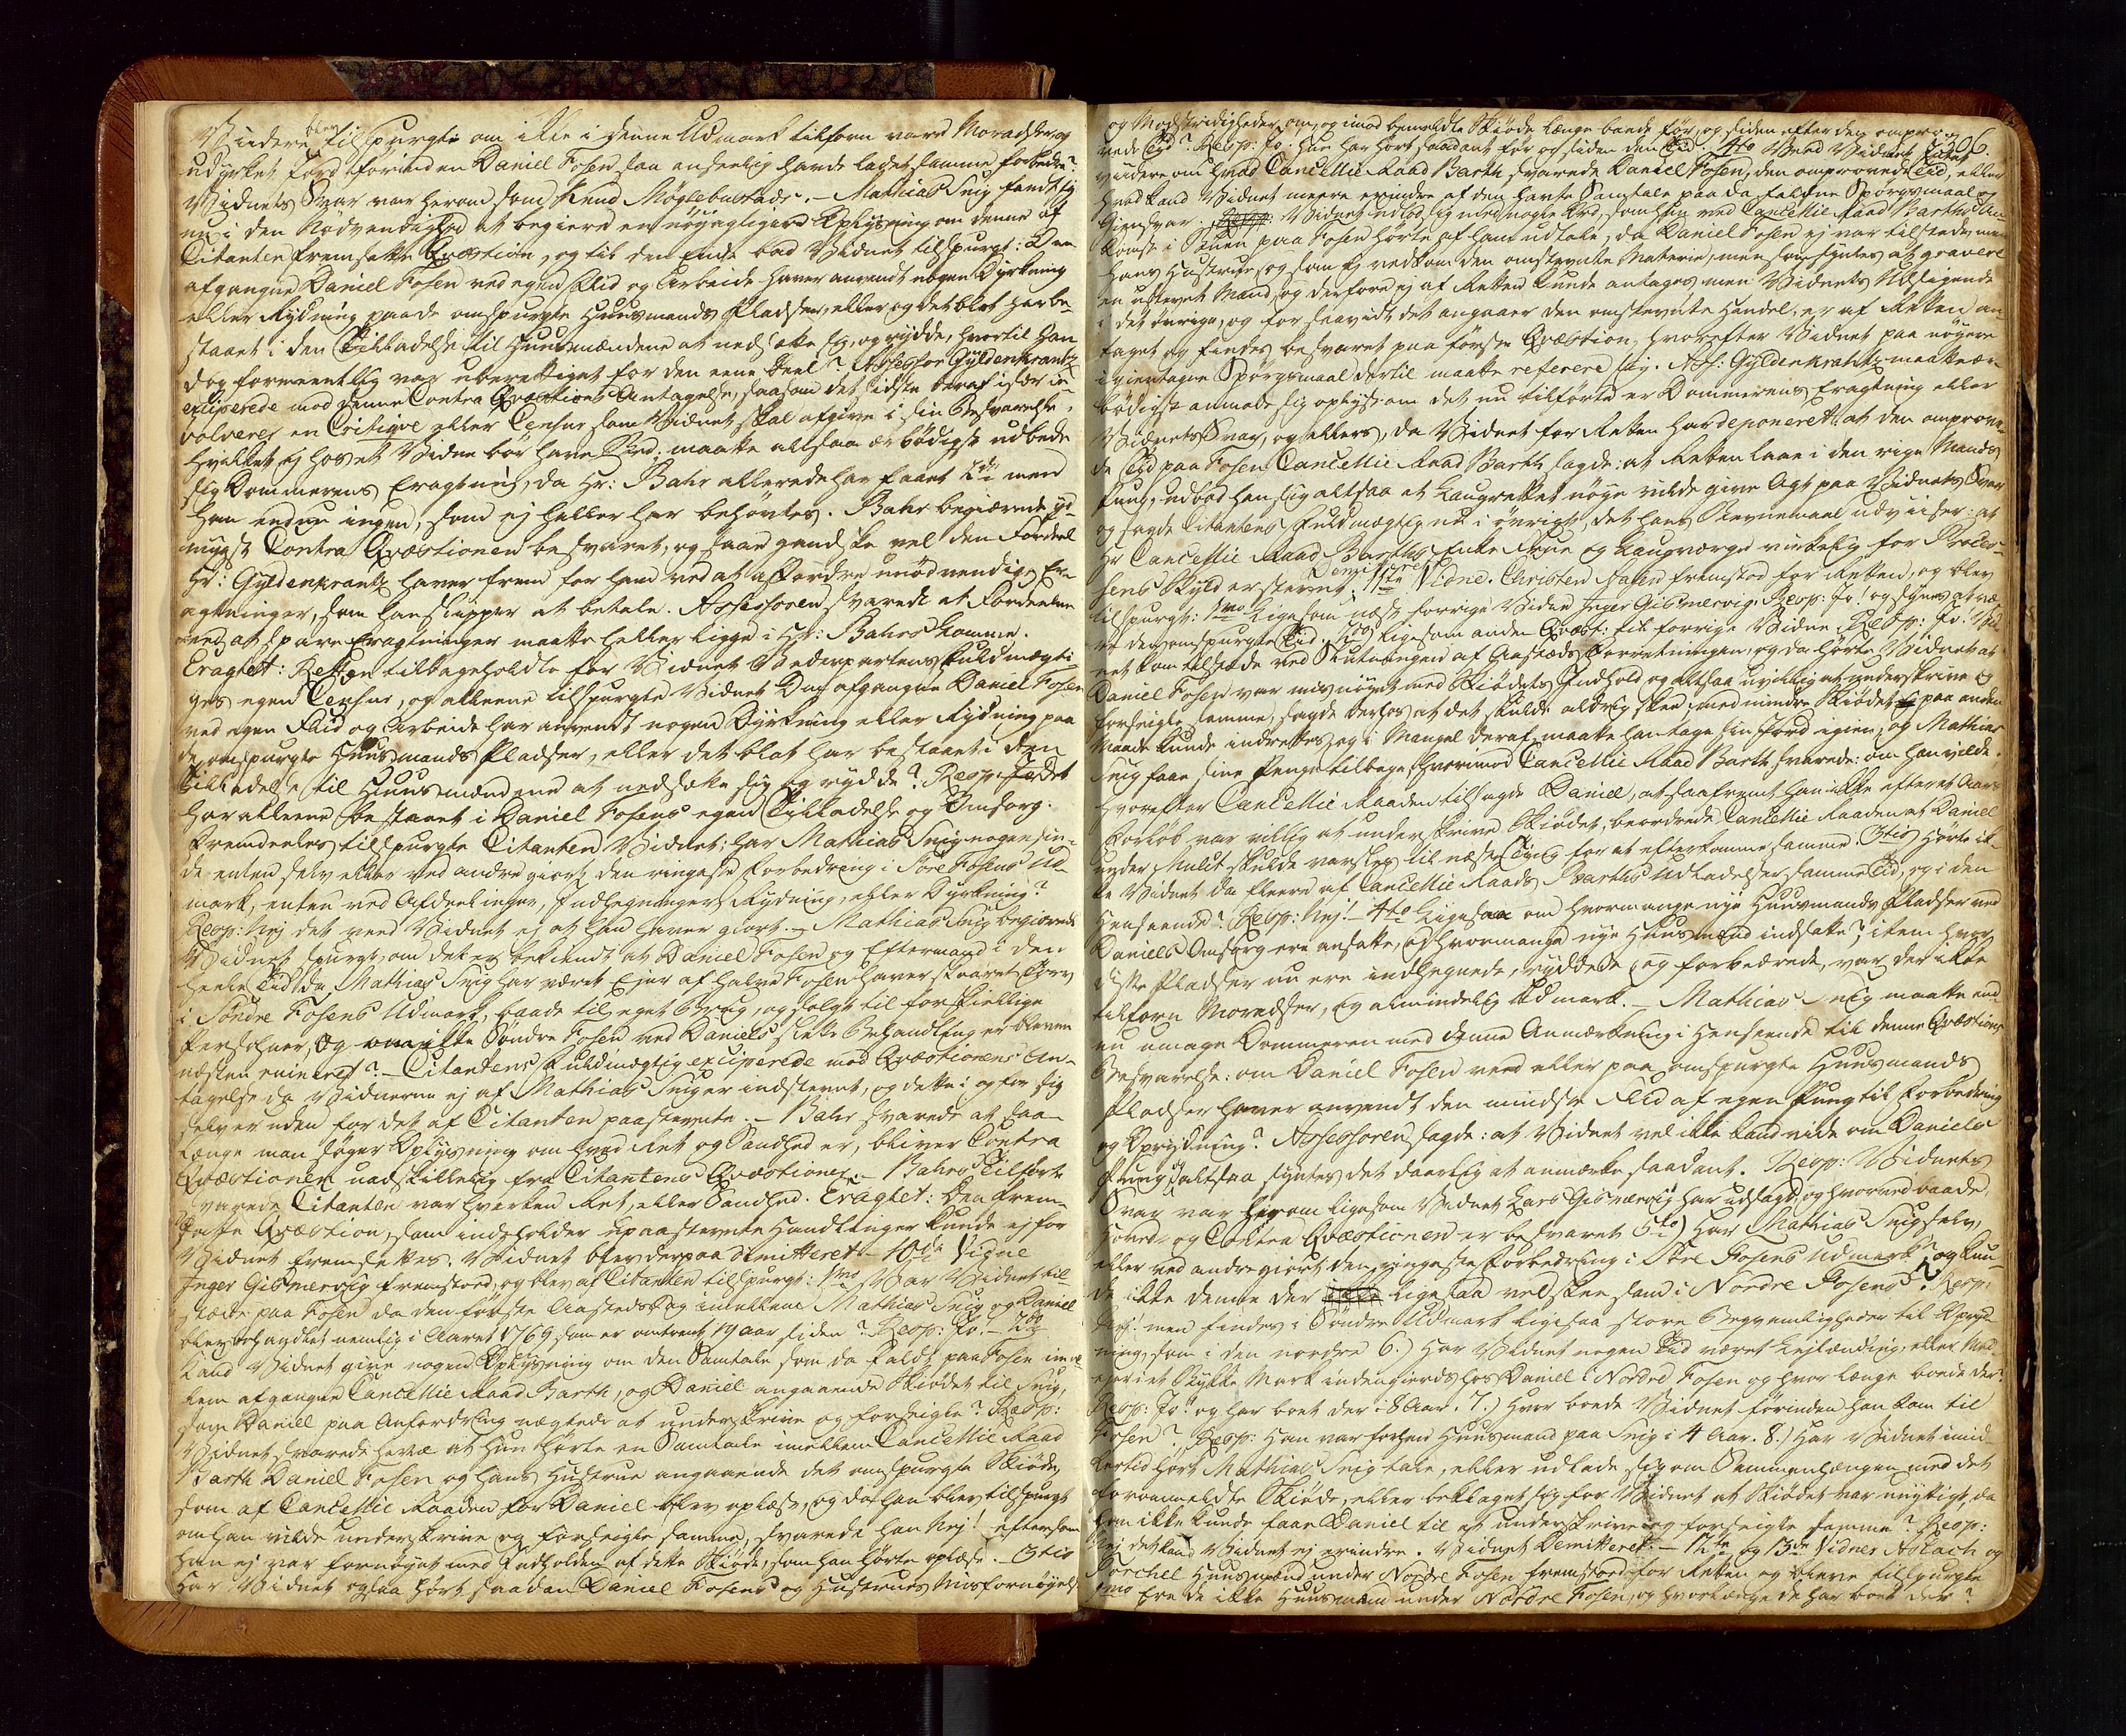 Viidere blev tilspurgte om ikke i denne Udmark tilforn vare Moradser og
udyrket Jord forinden Daniel Fosen saa anseelig havde ladet samme forbedre?
Vidnets Svar var herom som Knud Møglebustads. – Mathias Snig fandt sig
nu i den Nødvendighed at begiere en nøyagtigere Oplysning om denne af
Citanten fremsatte Qvæstion, og til den Ende bad Vidnet tilspurgt: Om
afgangne Daniel Fosen ved egen Flid og Arbeide haver anvendt nogen Dyrkning
eller Rydning paa de omspurgte Huusmands Pladser, eller og det blot har be-
staaet i den Tilladelse til Huusmændene at nedsætte sig, og rydde, hvortil han
dog formeentlig var uberettiget for den eene Deel? Assessor Gyldenkrantz
exciperede mod denne Contra Qvæstions Antagelse, saasom det sidste deraf især in-
volverer en Critiqve eller Censur som Vidnet skal afgive i sin Besvarelse,
hvilket ej hos et Vidne bør have Sted; maatte altsaa ærbødigst udbede
sig Dommerens Eragtning, da Hr: Bahr allerede har faaet 2de men
han endnu ingen, som ej heller har behøvtes. Bahr begiærede yd-
mygst Contra Qvæstionen besvaret, og saae gandske vel den Fordeel
Hr: Gyldenkrantz haver frem for ham ved at affordre unødvendige Er-
agtninger, som han slipper at betale. Assessoren svarede at Fordeelen
ved at spare Eragtninger maatte heller ligge i Hr: Bahrs Lomme.
Eragtet: Retten tilbageholdte for Vidnet Vederpartens Fuldmægti-
ges egen Censur, og alleene tilspurgte Vidnet Om afgangne Daniel Fosen
ved egen Flid og Arbeide har anvendt nogen Dyrkning eller Rydning paa
de omspurgte Huusmands Pladser, eller det blot har bestaaet i den
Tilladelse til Huusmændene at nedsætte sig og rydde? Resp: Jordet
har alleene bestaaet i Daniel Fosens egen Tilladelse og Omsorg.
Fremdeeles tilspurgte Citanten Vidnet: har Mathias Snig nogensin-
de enten selv eller ved andre giort den ringeste Forbedring i Søre Fosens Ud-
mark, enten ved Afdeelinger, Indhegninger, Rydning, eller Dyrkning?
Resp: Nej det veed Vidnet ej at han haver giort. – Mathias Snig begierede
Vidnet spurgt, om det er bekiendt at Daniel Fosen og Eftermand i den
heele Tid, da Mathias Snig har været Ejer af halve Fosen haver skaaret Torv
i Søndre Fosens Udmark, baade til eget Brug, og solgt til forskiellige
Personer, og om ikke Søndre Fosen ved Daniels slette Behandling er bleven
næsten ruineret? – Citantens Fuldmægtig exciperede mod Qvæstionens An-
tagelse da Vidnerne ej af Mathias Snig er indstevnt, og dette i og for sig
selv er uden for det af Citanten paastevnte. – Bahr svarede at saa-
længe man søger Oplysning om hvad Ret og Sandhed er, bliver Contra
Qvæstionen uadskillelig fra Citantens Qvæstioner. – Bahrs Tilførte
svarede Citanten var hverken Ret, eller Sandhed. Eragtet: Den frem-
satte Qvæstion, som indeholder upaastevnte Handlinger kunde ej for
Vidnet fremsettes. Vidnet blev derpaa dimitteret – 10de Vidne
Inger Gismervig fremstoed, og blev af Citanten tilspurgt: 1mo Var Vidnet til-
stæde paa Fosen da den første Aasteds Sag imellem Mathias Snig og Daniel
blev behandlet nemlig i Aaret 1769 som er omtrent 19 aar siden? Resp: Jo! – 2do
Kand Vidnet give nogen Oplysning om den Samtale som da faldt paa Fosen imel-
lem afgangne Cancellie Raad Barth, og Daniel angaaende Skiødet til Snig,
som Daniel paa Anfordring nægtede at underskrive og forseigle? Resp:
Vidnet svarede herpaa at hun hørte en Samtale imellem Cancellie Raad
Barth Daniel Fosen og hans Hustrue angaaende det omspurgte Skiøde,
som af Cancellie Raaden for Daniel blev oplæst, og da han blev tilspurgt
om han vilde underskrive og forseigle samme, svarede han Nej! eftersom
han ej var fornøyet med Indholden af dette Skiøde, som han hørte oplæse. – 3tio
Har Vidnet ogsaa hørt saadan Daniel Fosens og Hustrues Misfornøyelse
og Modstridigheder om, og imod bemeldte Skiøde længe baade før, og siden efter den ompro-
206.
vede Tid? Resp: Jo! Hun har hørt saadant før og siden den Tid. 4to Veed Vidnet intet
viidere om hvad Cancellie Raad Barth svarede Daniel Fosen, den omprovede Tid, eller
hvad kand Vidnet meere erindre af den havte Samtale paa da faldne Spørgsmaal og
Giensvar. Vidnet udlod sig med nogle Ord, som hun ved Cancellie Raad Barths An-
komst i Stuen paa Fosen hørte af ham udtale, da Daniel Fosen ej var tilstede, men
hans Hustrue, og som ej vedkom den omstevnte Materie, men som syntes at gravere
en uttæret Mand, og derfore ej af Retten kunde antages men Vidnets Udsigende
i det øvrige, og for saavidt det angaaer den omstevnte Handel, er af Retten an-
taget og findes besvaret paa første Qvæstion, hvorefter Vidnet paa nøyere
igientagne Spørgsmaal dertil maatte referere sig. Ass: Gyldenkrantz maatte ær-
bødigst anmode sig oplyst om det nu tilførte er Dommerens Eragtning eller
Vidnets Svar, og ellers, da Vidnet for Retten har deponeret: at den omprove-
de Tid paa Fosen Cancellie Raad Barth sagde: at Retten laae i den rige Mands
Pung, udbad han sig altsaa at Laugrettet nøye vilde give Agt paa Vidnets Svar
og sagde Citantens Fuldmægtig nu i øvrigt, det hans Stevnemaal udviiser: at
Hr Cancellie Raad Barths Enke Frue og Laugværge virkelig for Proces-
sens Skyld er stevnt. Demitteret 11te Vidne. Christen Aaleen fremstod for Retten, og blev
tilspurgt: 1mo Ligesom næst forrige Vidne Inger Gismervig. Resp: Jo! og synes at væ-
re den omspurgte Tid. 2do Ligesom anden Qvæst: til forrige Vidne. Resp: Jo! Vid-
net kom tilstede ved Slutningen af Aasteds Forretningen, og da hørte Vidnet at
Daniel Fosen var misnøyet med Skiødets Indhold og altsaa uvillig at underskrive og
forseigle samme, sagde derhos at det skulde aldrig skee med mindre Skiødet paa anden
Maade kunde indrettes, og i Mangel deraf maatte han tage sin Jord igien, og Mathias
Snig faae sine Penge tilbage, hvorimod Cancellie Raad Barth svarede: om han vilde.
hvorefter Cancellie Raaden tilsagde Daniel, at saafremt han ikke efter et Aars
Forløb var villig at underskrive Skiødet, beordrede Cancellie Raaden at Daniel
under Mulct skulde varsles til næste Ting for at efterkomme samme. 3tio Hørte ik-
ke Vidnet da fleere af Cancellie Raads Barths Udladelser samme Tid, og i den
Henseende? Resp: Nej! – 4to Ligesaa om hvormange nye Huusmands Pladser ved
Daniels Omsorg ere ansatte, og hvormange nye Huusmænd indsatte?, item hvor
disse Pladser nu ere indhegnede, ryddede og forbedrede, var der ikke
tilforn Moradser, og almindelig Udmark. – Mathias Snig maatte end-
nu umage Dommeren med denne Anmærkning i Henseende til denne Qvæstions
Besvarelse: om Daniel Fosen ved eller paa omspurgte Huusmands
Pladser haver anvendt den mindste Flid af egen Pung til Forbedring
og Oprydning? Assessoren sagde: at Vidnet vel ikke kand vide om Daniels
Pung, altsaa syntes det daarlig at anmærke saadant. Resp: Vidnets
Svar var herom ligesom Vidnet Lars Gismervig har udsagt, og hvorved baade
Hoved- og Contra Qvæstionen er besvaret 5to) Har Mathias Snig selv,
eller ved andre giort den ringeste Forbedring i Søre Fosens Udmark? og kun-
de ikke denne der ligesaa vel skee som i Nordre Fosens? Resp:
Nej. men findes i Søndre Udmark ligesaa store Beqvemligheder til Opryd-
ning, som i den nordre 6.) Har Vidnet nogen Tid været Lejlænding, eller Med-
ejer i et Stykke Mark indengierds hos Daniel i Nordre Fosen og hvor længe boede der?
Resp: Jo! og har boet der i 8 Aar. 7.) Hvor boede Vidnet førinden han kom til
Fosen? Resp: Han var forhen Huusmand paa Snig i 4 Aar. 8.) Har Vidnet imid-
lertid hørt Mathias Snig tale, eller udlade sig om Sammenhængen med det
foranmeldte Skiøde, eller beklaget sig for Vidnet at Skiødet var unyttigt, da
han ikke kunde faae Daniel til at underskrive og forseigle samme? Resp:
Nej det kand Vidnet ej erindre. Vidnet Demitteret. – 12te og 13de Vidner Aslach og
Torchel Huusmænd under Nordre Fosen fremstoed for Retten og bleve tilspurgte
1mo Ere de ikke Huusmænd under Nordre Fosen, og hvorlænge de har boet der?